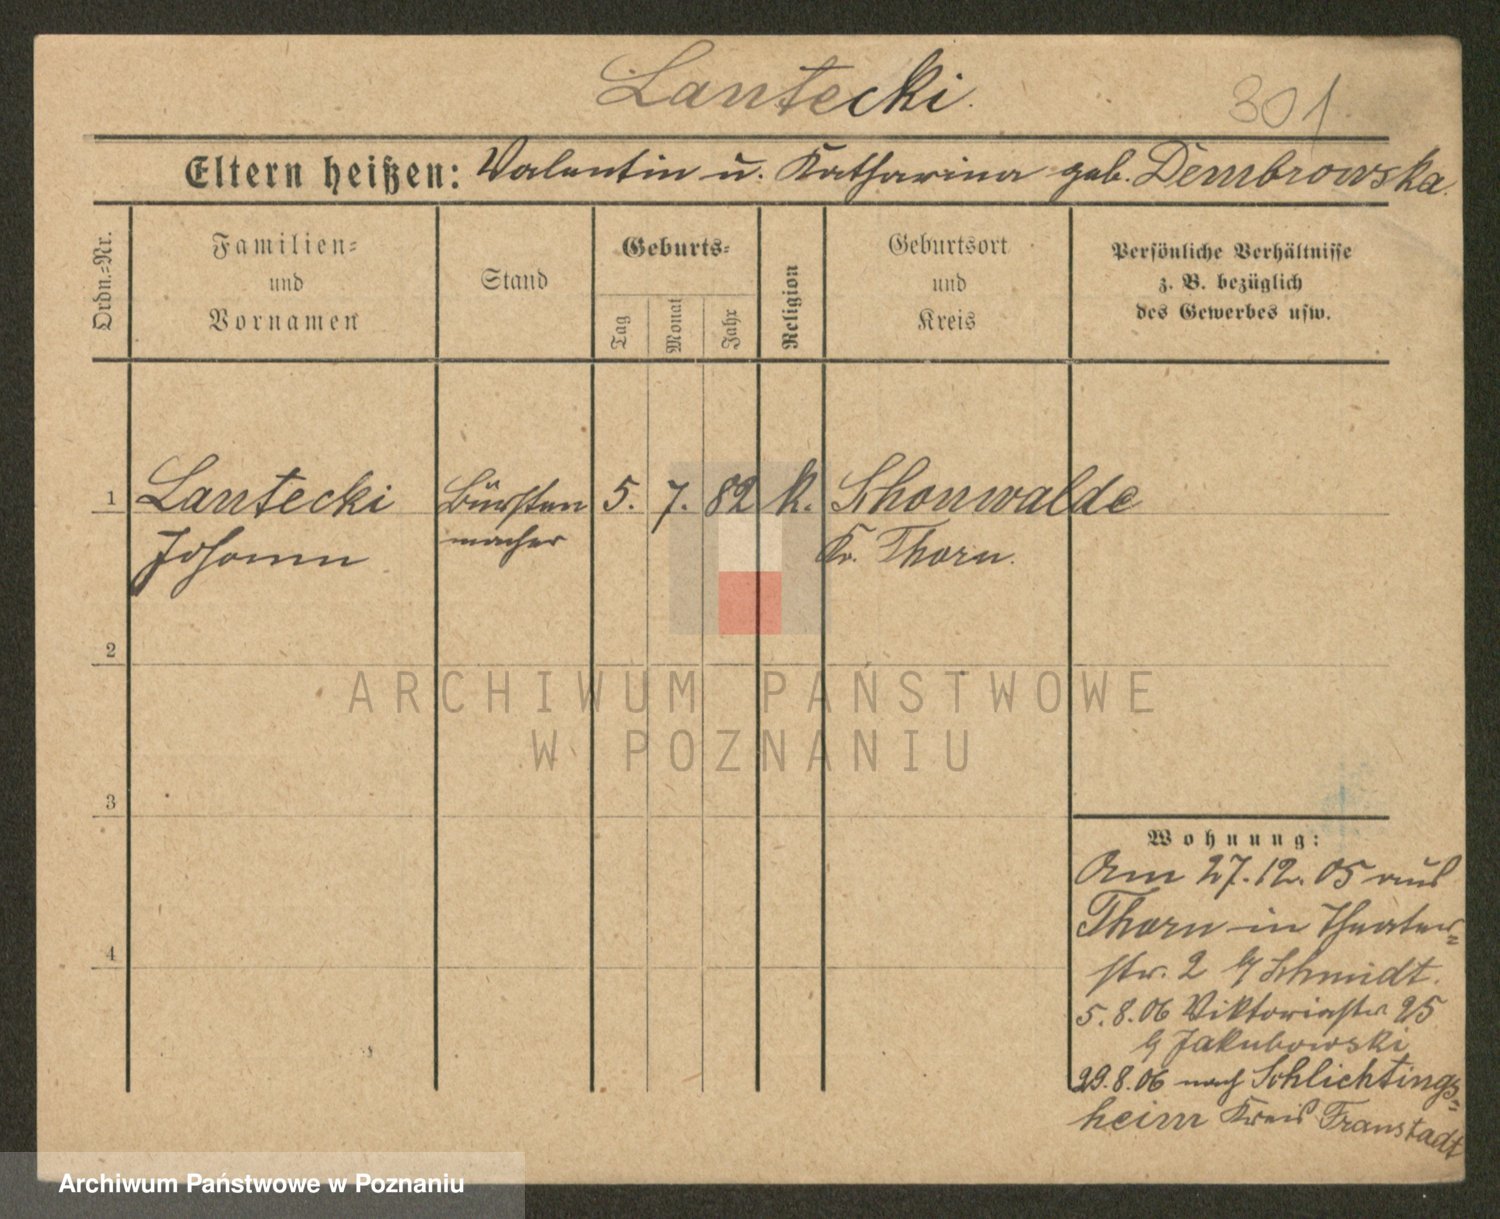 Lantecki.
301
Eltern heißen: Valentin u. Katharina geb. Dembrowska.
Ordn.-Nr.
Familien-
und
Vornamen
Stand
Geburts-
Tag
Monat
Jahr
Religion
Geburtsort
und
Kreis
Persönliche Verhältnisse
z. B. bezüglich
des Gewerbes usw.
1 Lantecki Bürsten 5. 7. 82 k. Schonwalde
Johann macher Kr. Thorn.
2
3
4
Wohnung:
Am 27.12.05 aus
Thorn in Theater-
str. 2 b/ Schmidt.
5.8.06 Viktoriastr 25
b/ Jakubowski
29.8.06 nach Schlichtings-
heim Kreis Fraustadt
ARCHIWUM PAŃSTWOWE
W POZNANIU
Archiwum Państwowe w Poznaniu